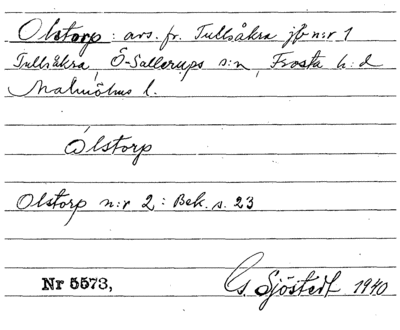 Olstorp: avs. fr. Tullsåkra jb n:r 1
Tullsåkra, Ö-Sallerups s:n, Frosta h:d
Malmöhus l.
Ólstorp
Olstorp n:r 2: Bek. s. 23
Nr 5573, G. Sjöstedt 1940